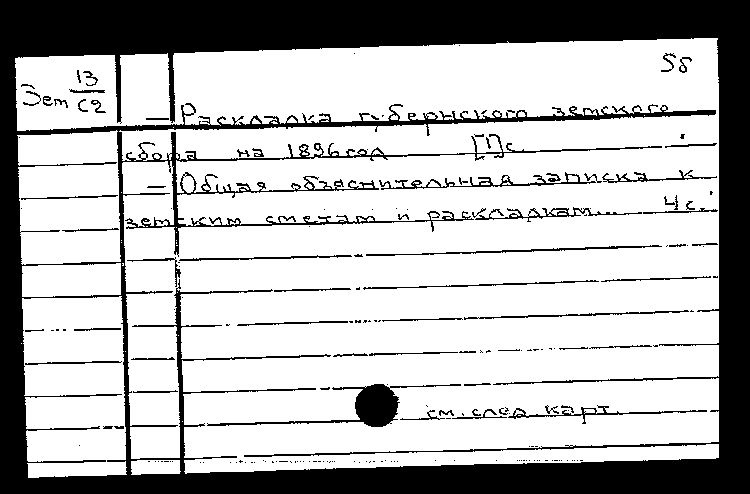 5б
Зем 13/С2
— Раскладка губернского земского
сбора на 1896 год [1] с.
— Общая объяснительная записка к
земским сметам и раскладкам... 4 с.
см. след. карт.